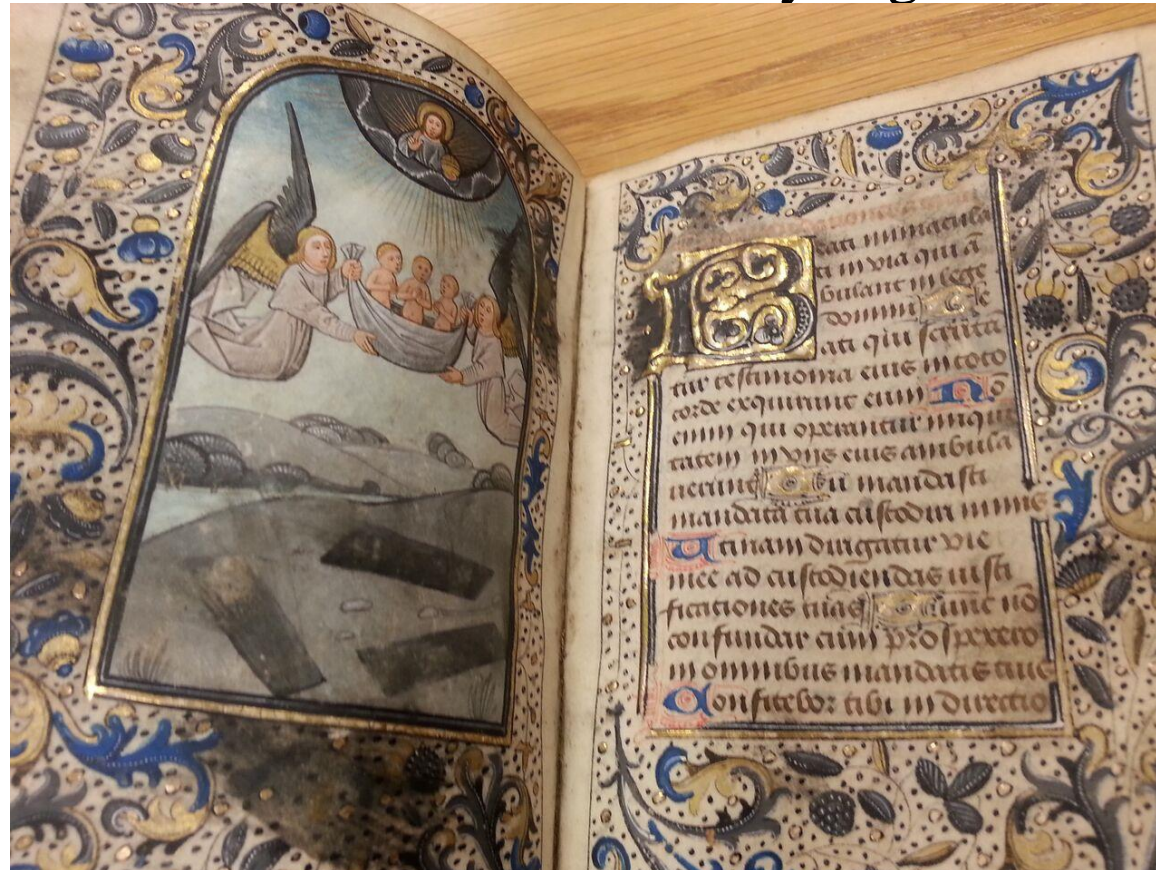 Beati immacula
ti in via qui ā
bulant in lege
domini Be
ati qui scruta
tur testimonia eius in toto
corde exquirunt eum No
enim qui operantur iniqui
tatem in viis eius ambula
uerunt Tu mandasti
mandata tua custodiri nimis
Utinam dirigatur vie
mee ad custodiendas iusti
ficationes tuas Tunc nō
confundar cum prospexero
in omnibus mandatis tuis
Confitebor tibi in directio